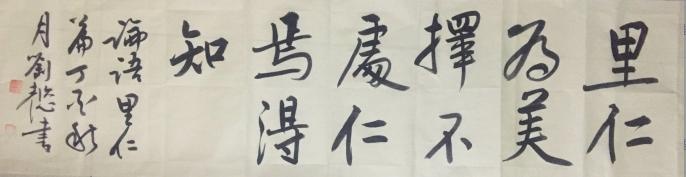 里仁
為美
擇不
處仁
焉得
知
論語里仁
篇丁酉秋
月劉懿書